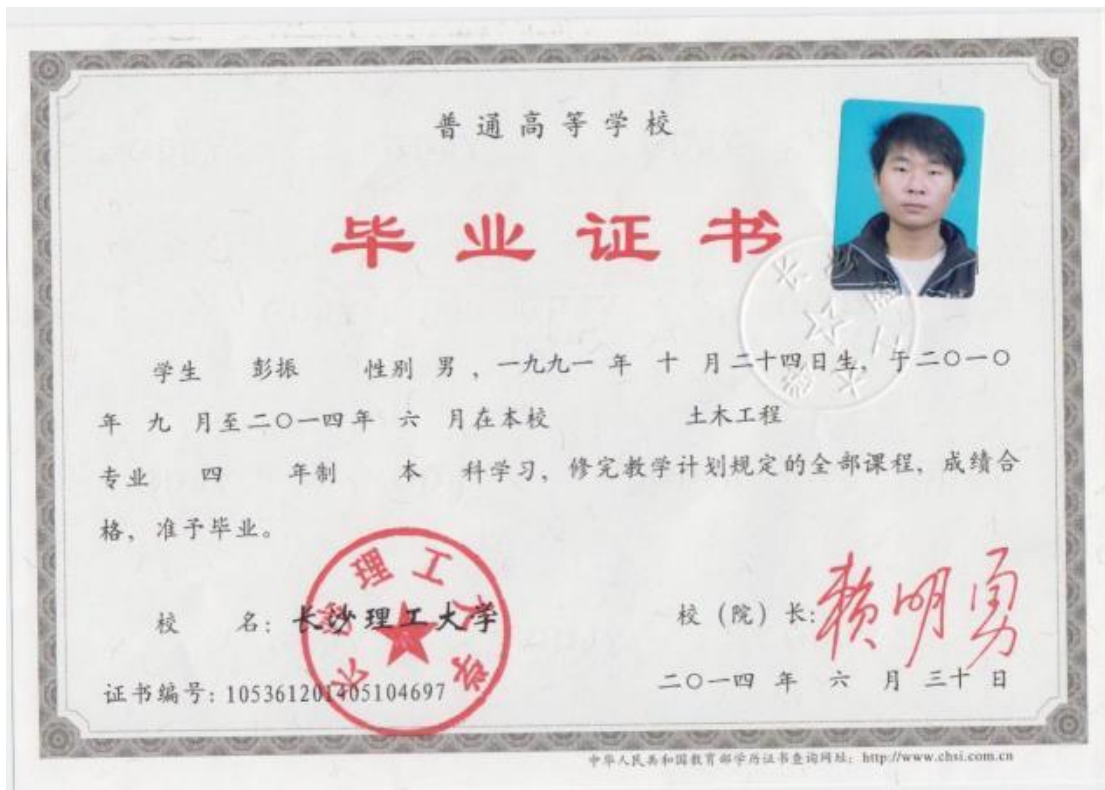 普通高等学校
毕业证书
学生 彭振 性别 男 ，一九九一 年 十 月二十四日生，于二〇一〇
年 九 月至二〇一四年 六 月在本校 土木工程
专业 四 年制 本 科学习，修完教学计划规定的全部课程，成绩合
格，准予毕业。
校 名：长沙理工大学
校（院）长：赖明勇
证书编号：105361201405104697
二〇一四 年 六 月 三十 日
长沙理工大学
长沙理工大学
中华人民共和国教育部学历证书查询网址：http://www.chsi.com.cn